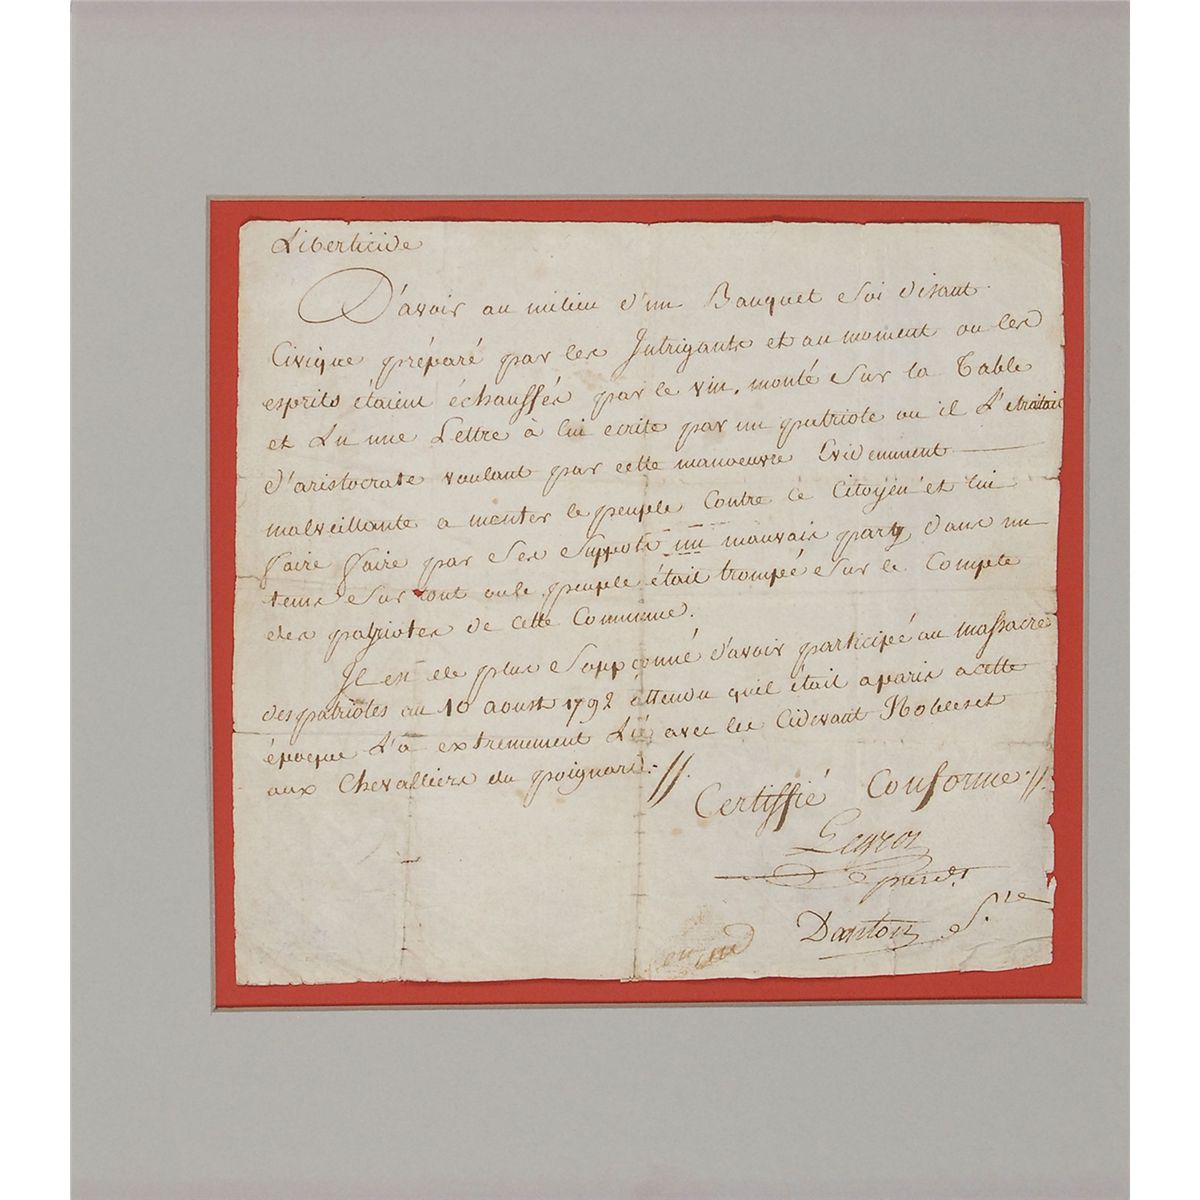 Liberticide
D'avoir au milieu d'un Banquet Soi disant
Civique préparé par les Intrigants et au moment ou les
esprits étaient échauffés par le vin, monté Sur la Table
et Lu une Lettre à lui ecrite par un patriote ou il L'etraitait
d'aristocrate voulant par cette manoeuvre Evidemment
malveillante a monter le peuple Contre ce Citoyen et lui
faire faire par Ses Suppots un mauvais party dans un
tems Sur tout ou le peuple était trompée Sur le Compte
des patriotes de cette Commune.
Il est de plus Soupçonné d'avoir participée au massacre
des patriotes au 10 aoust 1792 attendu quil était a paris a cette
époque L'a extremement Lié avec les Cidevant Nobles et
aux Chevalliers du poignard ://.
Certiffié Conforme .//.
presdt.
Danton S.re